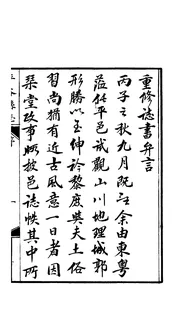 重修誌書弁言
丙子之秋九月既望余由東粤
蒞任平邑試觀山川地理城郭
形勝以至紳衿黎庶與夫土俗
習尚猶有近古風意一日者因
琹堂政事暇披邑誌帙其中所